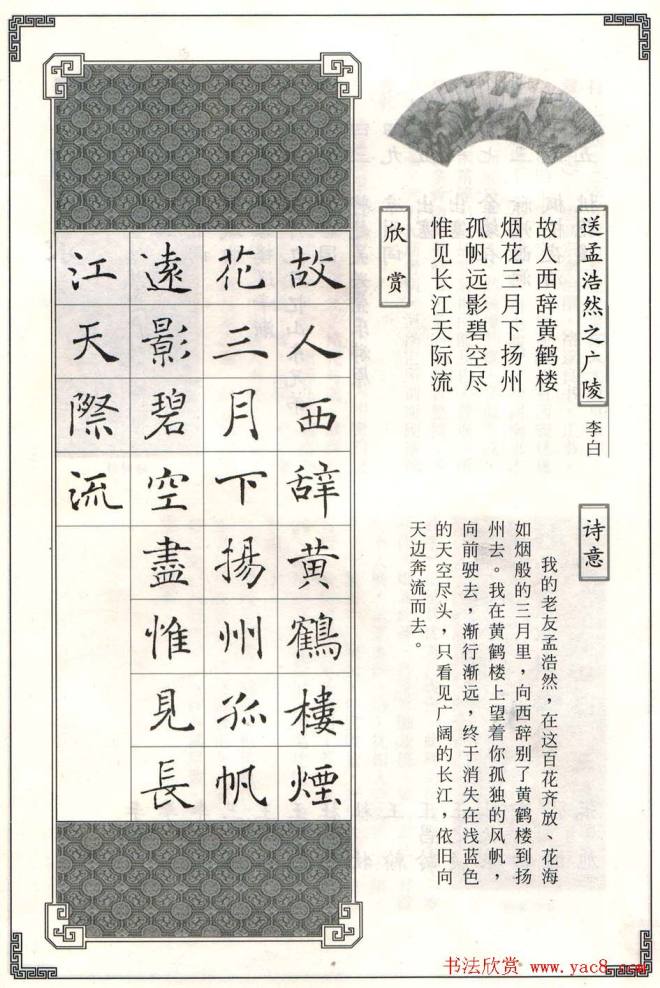 送孟浩然之广陵
李白
故人西辞黄鹤楼
烟花三月下扬州
孤帆远影碧空尽
惟见长江天际流
欣赏
诗意
我的老友孟浩然，在这百花齐放、花海
如烟般的三月里，向西辞别了黄鹤楼到扬
州去。我在黄鹤楼上望着你孤独的风帆，
向前驶去，渐行渐远，终于消失在浅蓝色
的天空尽头，只看见广阔的长江，依旧向
天边奔流而去。
故人西辞黄鶴樓煙
花三月下揚州孤帆
遠影碧空盡惟見長
江天際流
书法欣赏 www.yac8.com